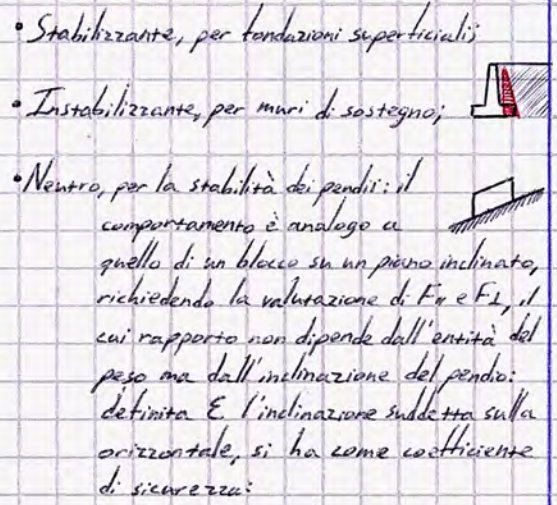 • Stabilizzante, per fondazioni superficiali;
• Instabilizzante, per muri di sostegno;
• Neutro, per la stabilità dei pendii: il
comportamento è analogo a
quello di un blocco su un piano inclinato,
richiedendo la valutazione di F∥ e F⊥, il
cui rapporto non dipende dall'entità del
peso ma dall'inclinazione del pendio:
definita ε l'inclinazione suddetta sulla
orizzontale, si ha come coefficiente
di sicurezza: